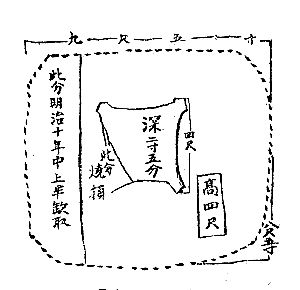 九尺五寸
深二寸五分
四尺
此分
燒損
高四尺
八尺五寸
此分明治十年中上半缺取